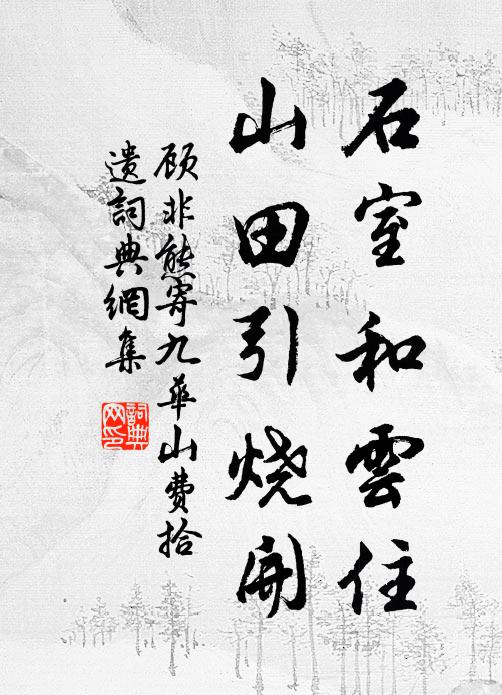 石室和雲住
山田引烧開
顾非熊寄九華山費拾
遗詞典網集
詞典
网印